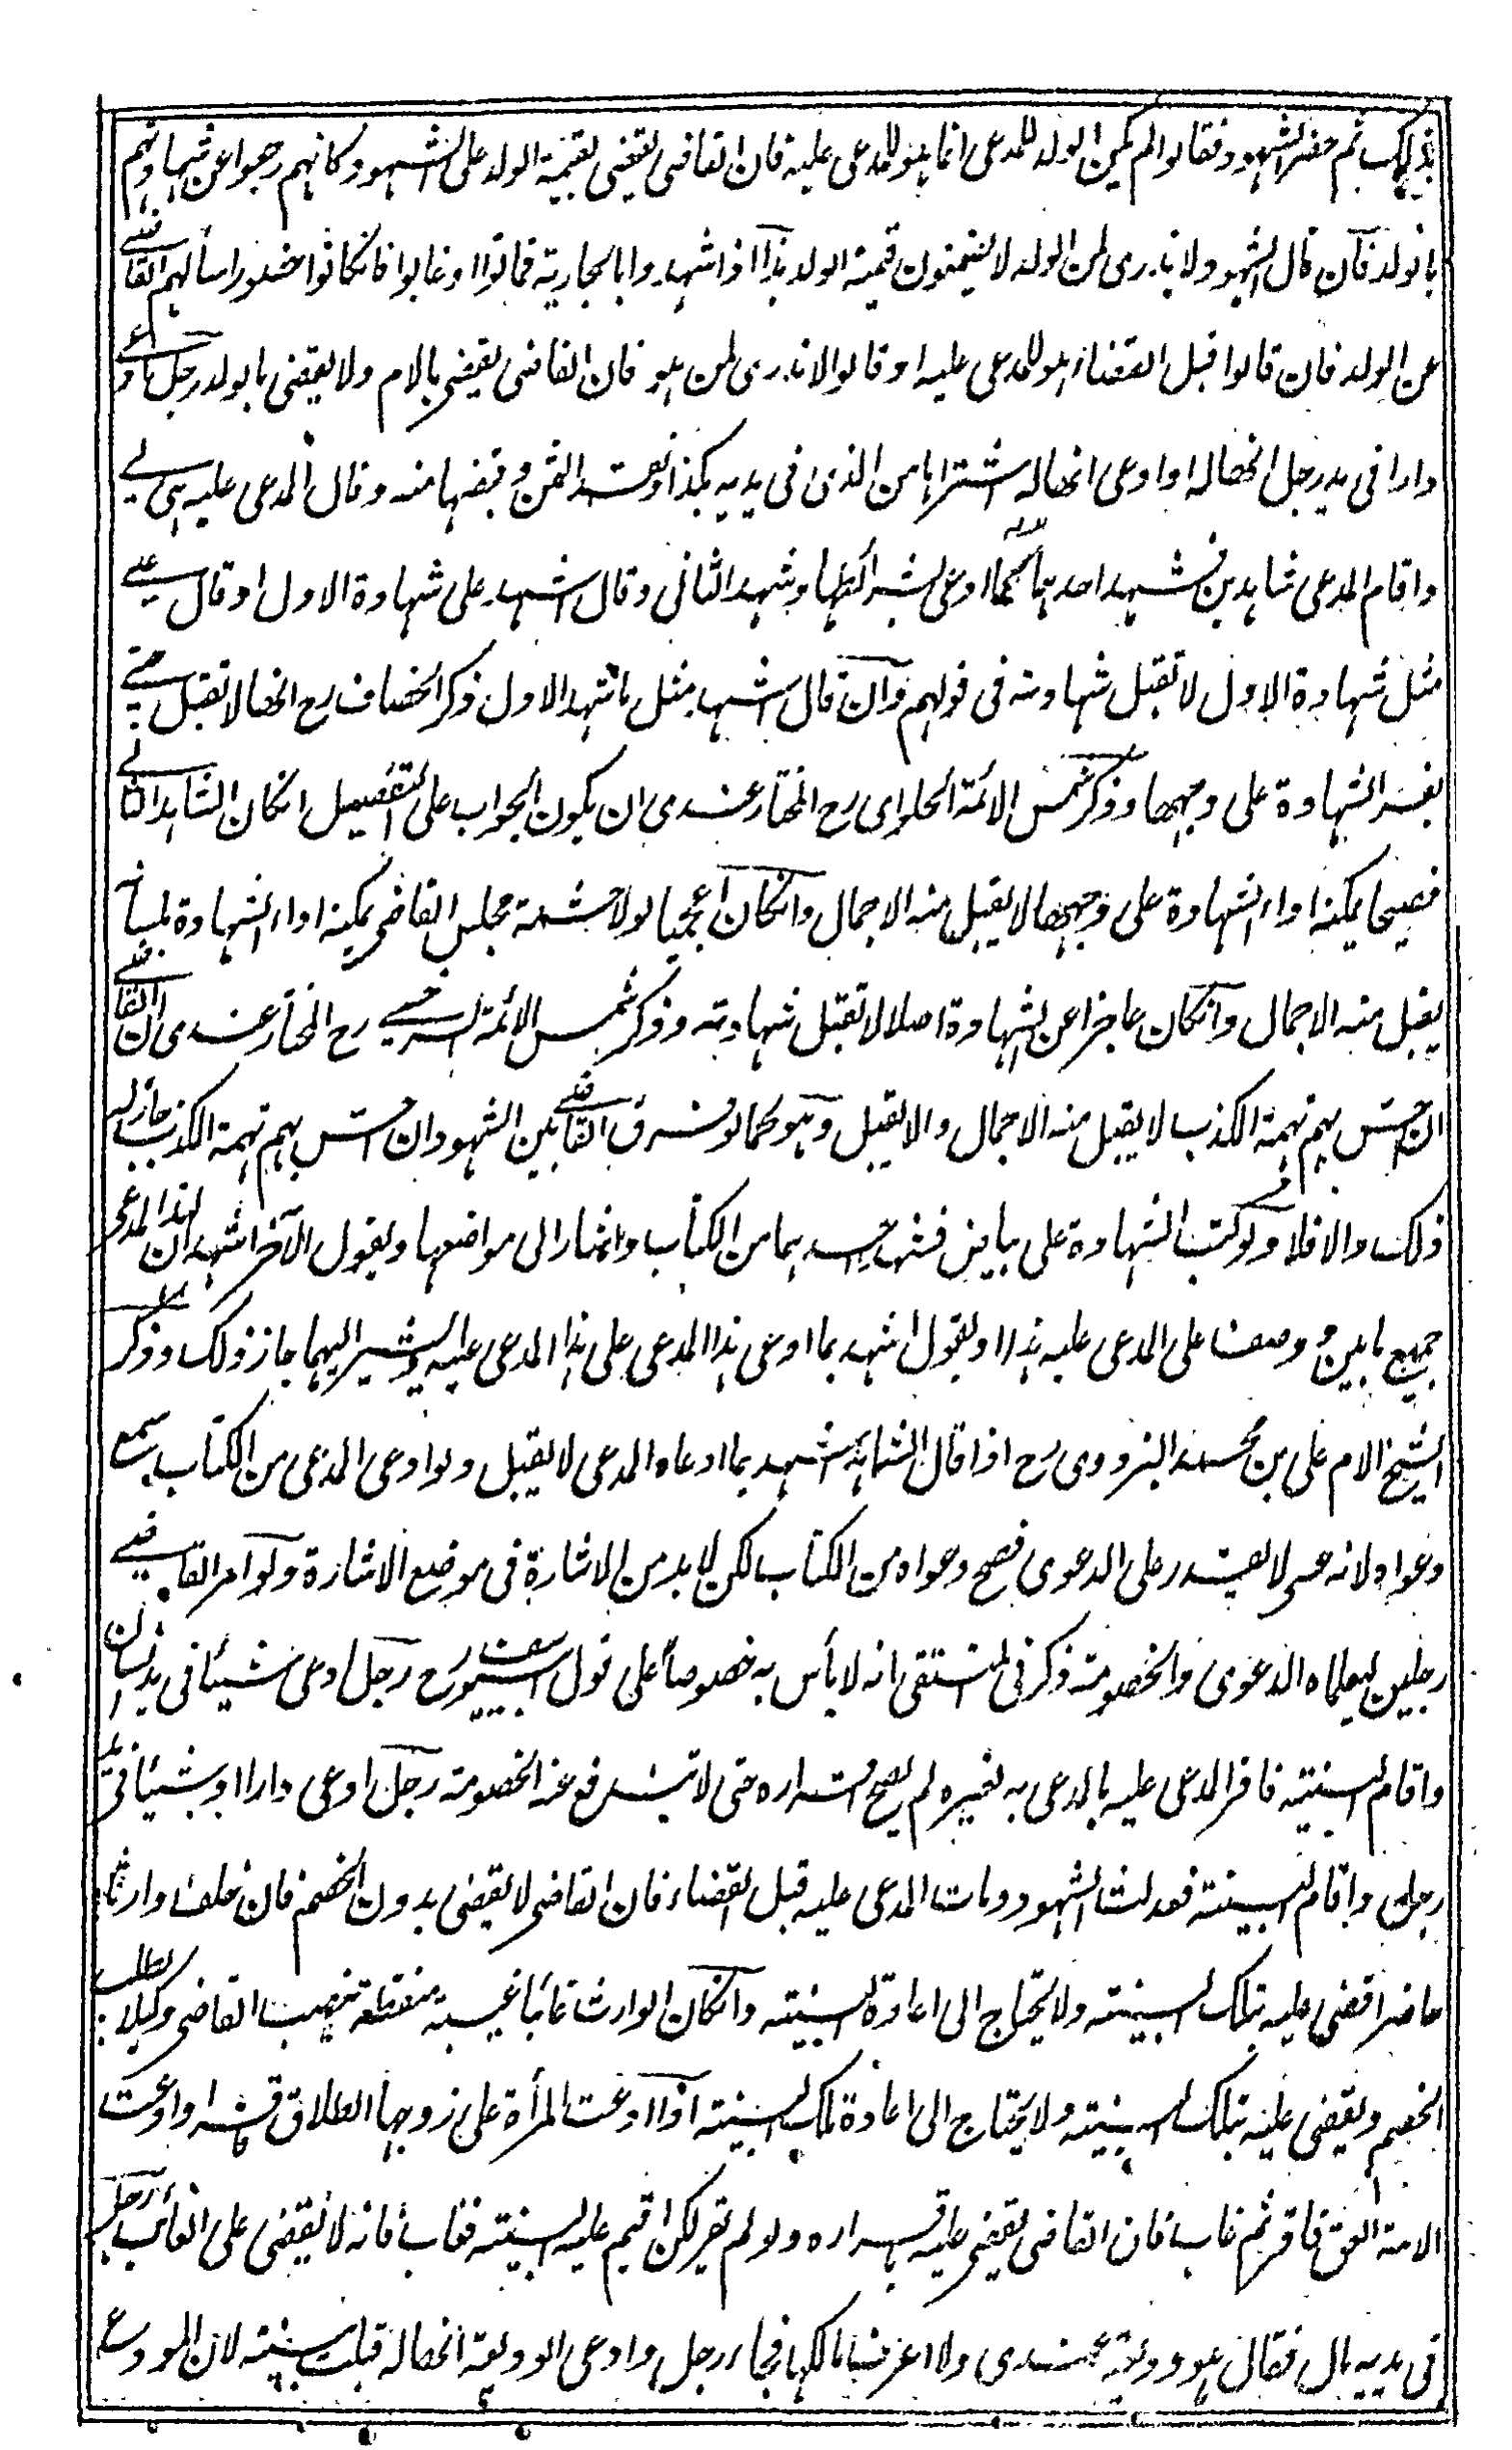 بذلك ثم حضر الشهود وفقالوا لم يكن الولد للمدعى انما هو للمدعى عليه فان القاضى يقضى بقيمة الولد على الشهود وكانهم رجعوا عن شهادتهم
بالولد فان قال الشهود ولا ندرى لمن الولد لا يضمنون قيمة الولد هذا اذا شهدوا بالجارية فماتوا او غابوا فانكانوا حضورا سألهم القاضى
عن الولد فان قالوا قبل القضاء هو للمدعى عليه او قالوا لا ندرى لمن هو فان القاضى يقضى بالام ولا يقضى بالولد رجل ادعى
دارا فى يد رجل انها له او ادعى انها له اشتراها من الذى فى يديه بكذا ونقد الثمن وقبضها منه وقال المدعى عليه هى لى
واقام المدعى شاهدين فشهد احدهما بما ادعى شهد الثانى وقال اشهد على شهادة الاول او قال على
مثل شهادة الاول لا تقبل شهادته فى قولهم وان قال اشهد بمثل ما شهد الاول ذكر الخصاف رح انها لا تقبل حتى
يفسر الشهادة على وجهها وذكر شمس الائمة الحلواى رح المختار عندى ان يكون الجواب على التفصيل انكان الشاهد الثانى
فصيحا يمكنه اداء الشهادة على وجهها لا يقبل منه الاجمال وانكان اعجميا لولا حشمة مجلس القاضى يمكنه اداء الشهادة بلسانه
يقبل منه الاجمال وانكان عاجزا عن الشهادة اصلا لا تقبل شهادته وذكر شمس الائمة السرخسى رح المختار عندى ان القاضى
ان احس بهم تهمة الكذب لا يقبل منه الاجمال والا يقبل وهو كما لو فرق القاضى بين الشهود ان احس بهم تهمة الكذب جاز له
ذلك والا فلا ولو كتب الشهادة على بياض فشهد احدهما من الكتاب واشار الى مواضعها ويقول الآخر اشهد ان لهذا المدعى
جميع ما بين ووصف على المدعى عليه هذا او يقول اشهد بما ادعى هذا المدعى على هذا المدعى عليه ويشير اليهما جاز ذلك وذكر
الشيخ الامام على بن محمد البزدوى رح اذا قال الشاهد اشهد بما ادعاه المدعى لا يقبل ولو ادعى المدعى من الكتاب يسمع
دعواه لانه عسى لا يقدر على الدعوى فصح دعواه من الكتاب لكن لا بد من الاشارة فى موضع الاشارة ولو امر القاضى
رجلين ليعلماه الدعوى والخصومة ذكر فى المنتقى انه لا بأس به خصوصا على قول ابى يوسف رح رجل ادعى شيئا فى يد انسان
واقام البينة فاقر المدعى عليه بالمدعى به لغيره لم يصح اقراره حتى لا تندفع عنه الخصومة رجل ادعى دارا او شيئا فى يد
رجل واقام البينة فعدلت الشهود ومات المدعى عليه قبل القضاء فان القاضى لا يقضى بدون الخصم فان خلف وارثا
حاضرا قضى عليه بتلك البينة ولا يحتاج الى اعادة البينة وانكان الوارث غائبا غيبة منقطعة نصب القاضى وكيلا لطلب
الخصم ويقضى عليه بتلك البينة ولا يحتاج الى اعادة تلك البينة اذا ادعت المرأة على زوجها الطلاق فاقر او ادعت
الامة العتق فاقر ثم غاب فان القاضى يقضى عليه باقراره ولو لم يقر لكن اقيم عليه البينة فغاب فانه لا يقضى على الغائب رجل
فى يديه مال فقال هو وديعة عندى ولا اعرف مالكها فجاء رجل وادعى الوديعة انها له قبلت بينته لان المودع